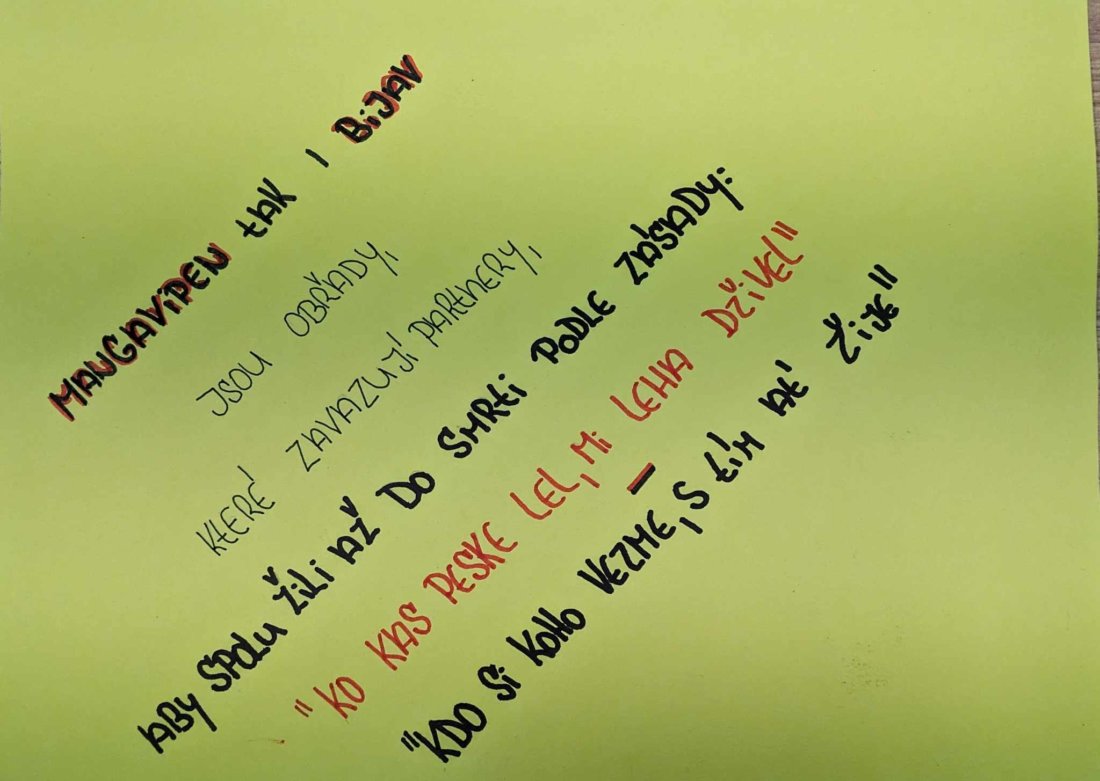 MANGAVIPEN tAK I BiJAV
JSOU OBŘADY,
KTERÉ ZAVAZUJÍ PARTNERY,
ABY SPOLU ŽiLi AŽ DO SMRti PODLE ZÁSADY:
"KO KAS PESKE LEL, Mi LEHA DŽiVEL"
–
"KDO Si KOHO VEZME, S tÍM AŤ ŽiJE"